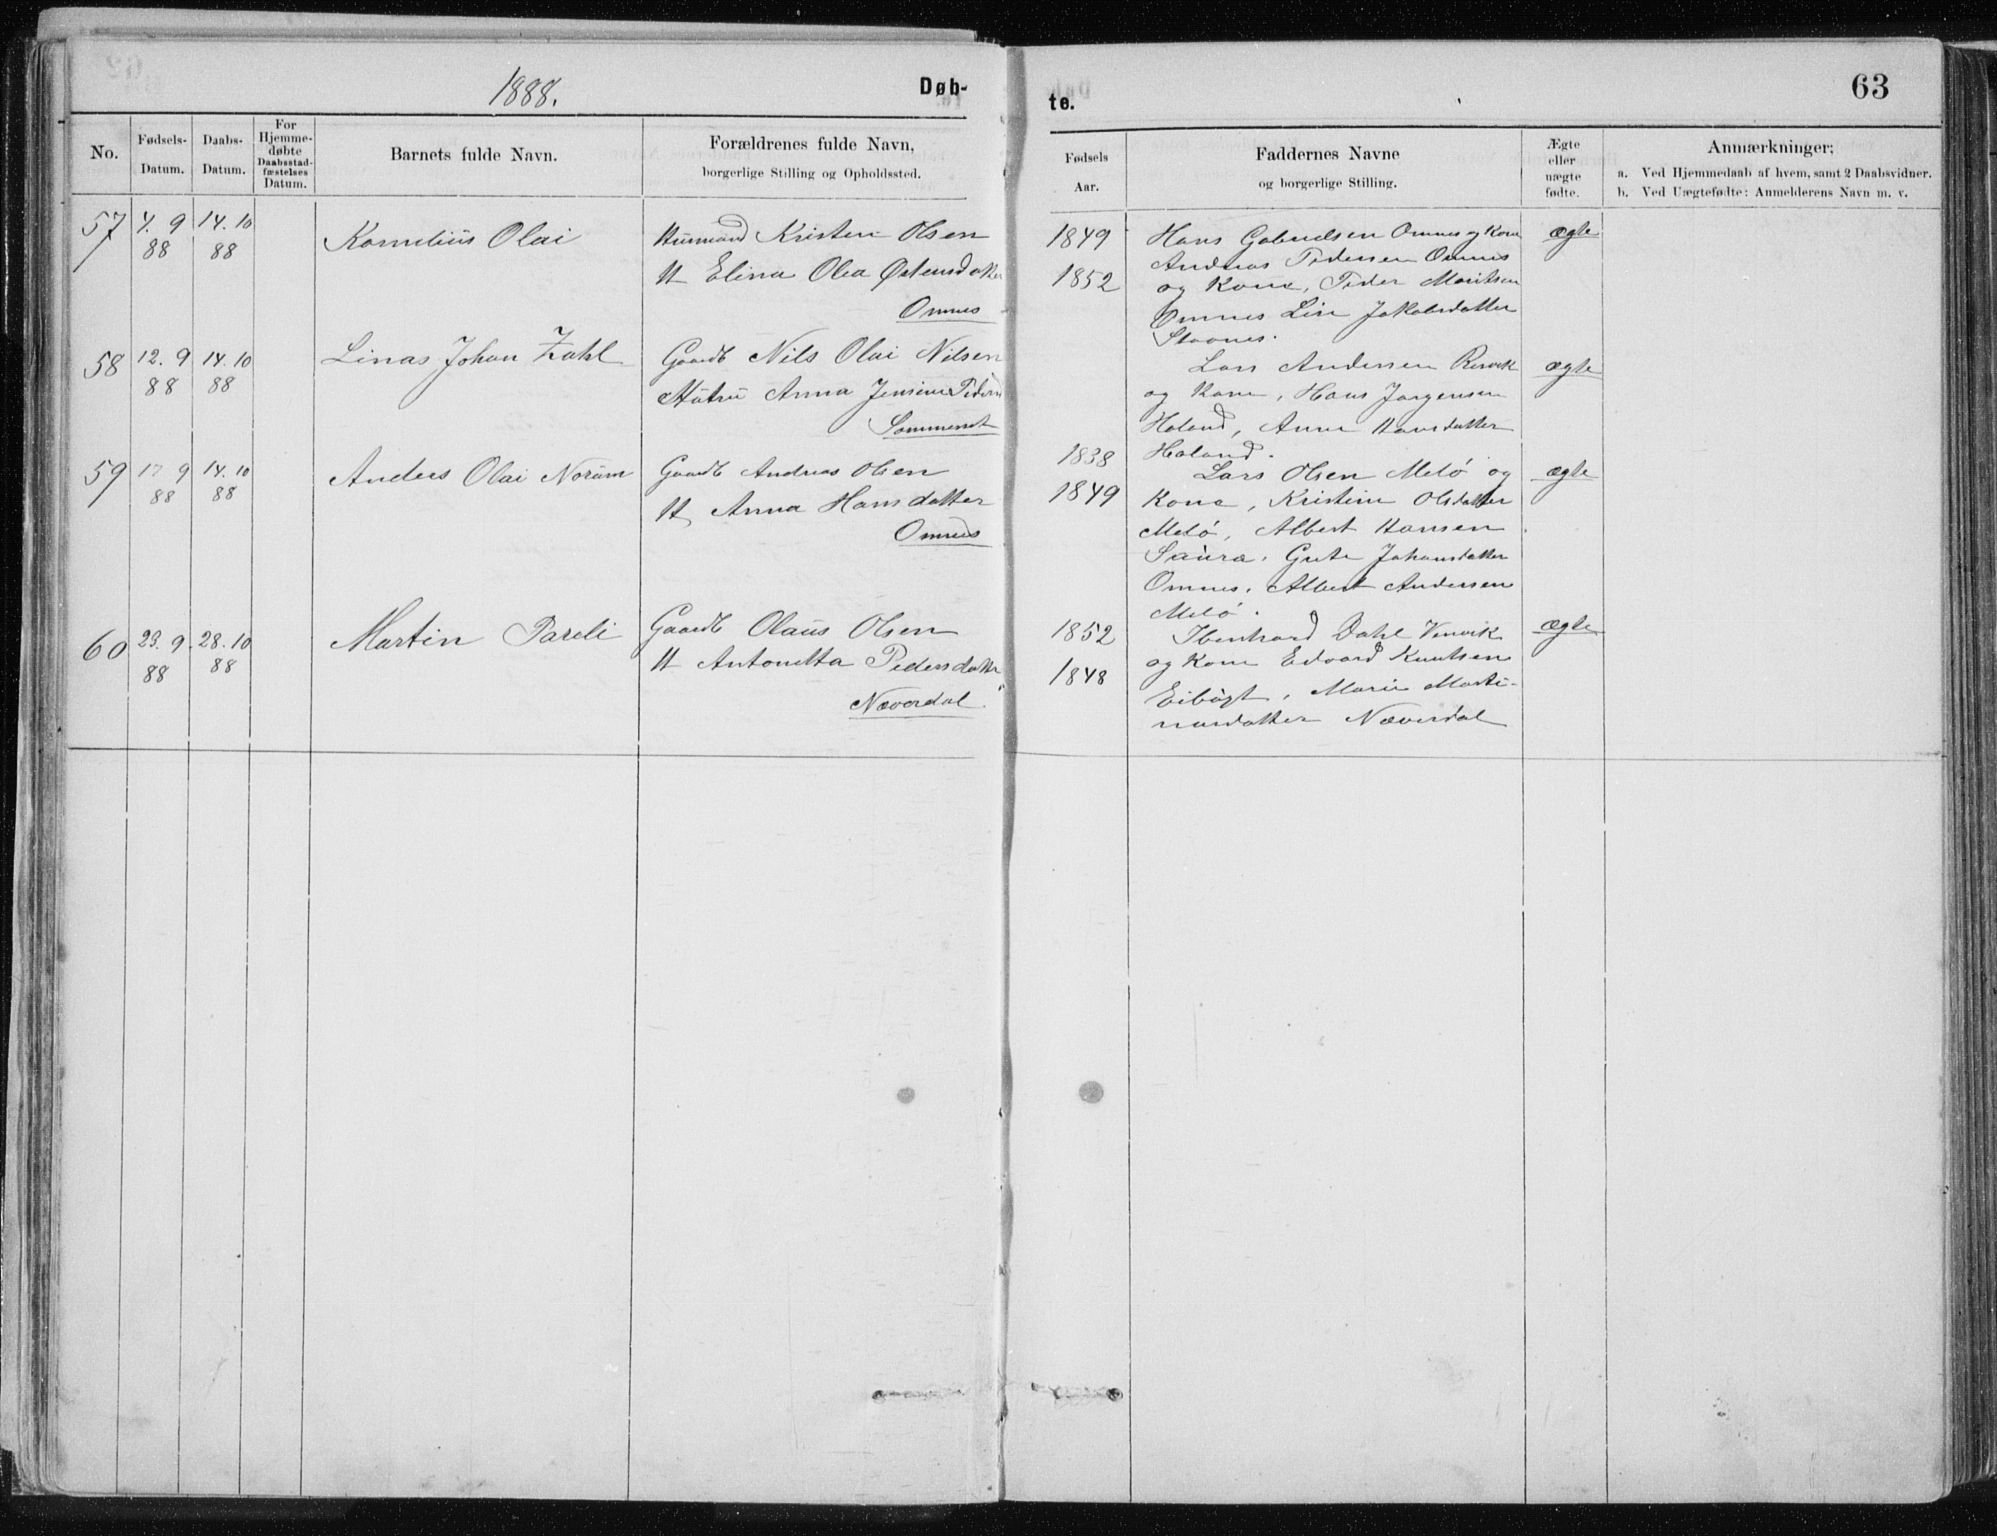 1888.
Døb-
No.
Fødsels-
Datum.
Daabs-
Datum.
For
Hjemme-
døbte
Daabsstad-
fæstelses
Datum.
Barnets fulde Navn.
Forældrenes fulde Navn,
borgerlige Stilling og Opholdssted.
57
4. 9
88
14. 10
88
Kornelius Olai
Husmand Kristen Olsen
H Elina Olea Østensdatter
Omnes
58
12. 9
88
14. 10
88
Linas Johan Zahl
Gaardb Nils Olai Nilsen
Hustru Anna Jensine
Sommerset
59
17 9
88
14. 10
88
Anders Olai Norum
Gaardb Andreas Olsen
H Anna Hansdatter
Omnes
60
23. 9
88
28. 10
88
Martin Pareli
Gaardb Olaus Olsen
H Antonetta Pedersdatter
Næverdal
te.
63
Fødsels
Aar.
Faddernes Navne
og borgerlige Stilling.
Ægte
eller
uægte
fødte.
Anmærkninger:
a. Ved Hjemmedaab af hvem, samt 2 Daabsvidner.
b. Ved Uægtefødte: Anmelderens Navn m. v.
1849
1852
Hans Gabrielsen Omnes og Kone
Andreas Pedersen Omnes
og Kone, Peder Moritsen
Omnes Lise Jakobsdatter
Stavnes.
ægte
Lars Andersen
og Kone, Hans Jørgensen
Holand, Anne Hansdatter
Holand.
ægte
1838
1849
Lars Olsen Melø og
Kone, Kristine Olsdatter
Melø, Albert Hansen
Saura, Grete Johansdatter
Omnes, Albert Andersen
Melø.
ægte
1852
1848
Ibenhard Dahl
og Kone Edvard Knutsen
Marie Marti-
nusdatter Næverdal
ægte